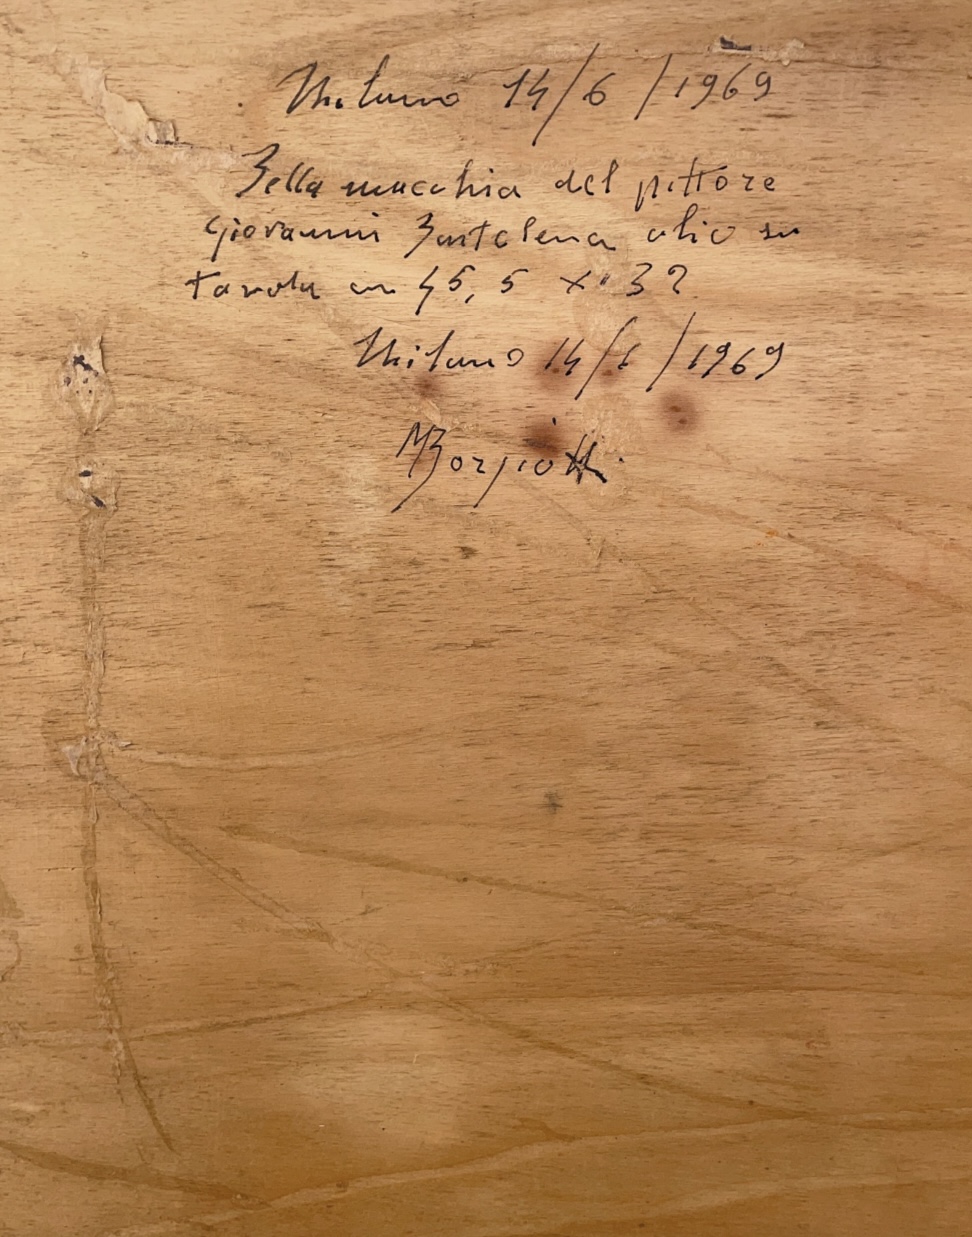 Milano 14/6/1969
Bella macchia del pittore
Giovanni Bartolena olio su
tavola cm 45,5 x 32
Milano 14/6/1969
MBorgiotti